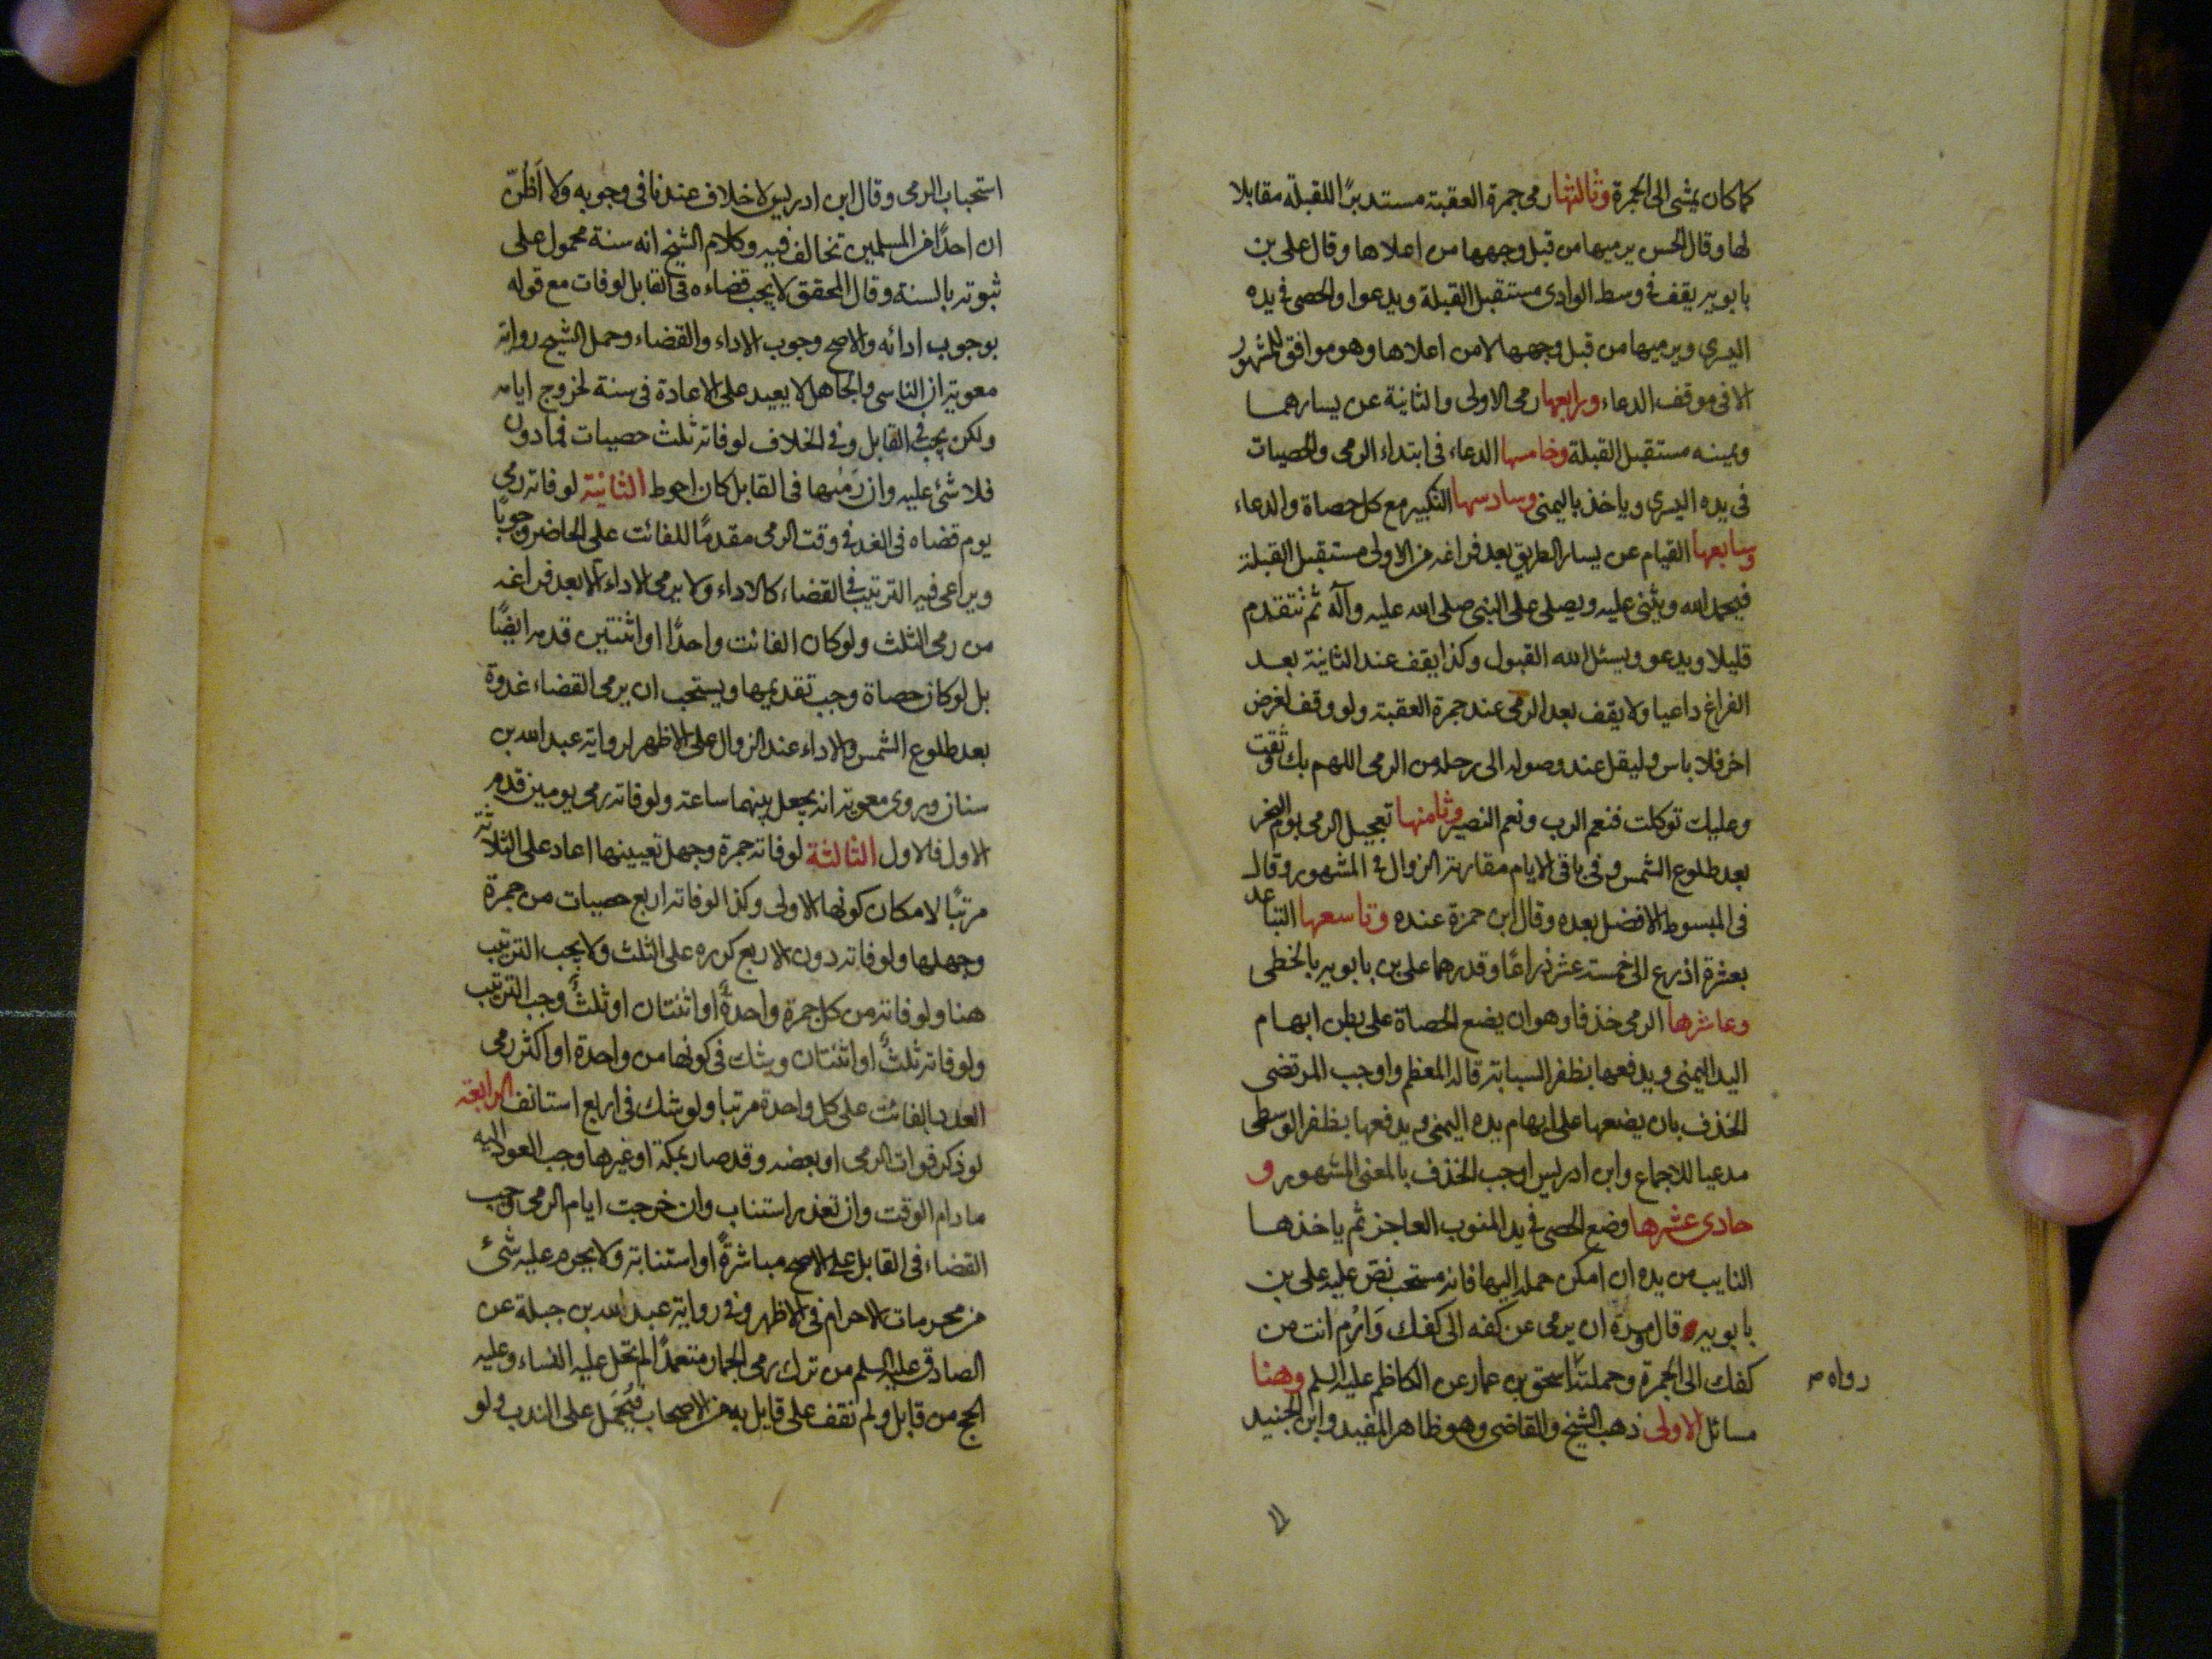 كما كان يمشى الى الجمرة وثالثها رمى جمرة العقبة مستدبرًا للقبلة مقابلا
لها وقال الحسن يرميها من قبل وجهها من اعلاها وقال على بن
بابويه يقف فى وسط الوادى مستقبل القبلة ويدعوا والحصى فى يده
اليسرى ويرميها من قبل وجهها لا من اعلاها وهو موافق للمشهور
الا فى موقف الدعاء ورابعها رمى الاولى والثانية عن يسارهما
ويمينه مستقبل القبلة وخامسها الدعاء فى ابتداء الرمى والحصيات
فى يده اليسرى وياخذ باليمنى وسادسها التكبير مع كل حصاة والدعاء
وسابعها القيام عن يسار الطريق بعد فراغه من الاولى مستقبل القبلة
فيحمد الله ويثنى عليه ويصلى على النبى صلى الله عليه وآله ثم تتقدم
قليلا ويدعو ويسئل الله القبول وكذا يقف عند الثانية بعد
الفراغ داعيا ولا يقف بعد الرمى عند جمرة العقبة ولو وقف لغرض
اخر فلا باس وليقل عند وصوله الى رحله من الرمى اللهم بك وثقت
وعليك توكلت فنعم الرب ونعم النصير وثامنها تعجيل الرمى يوم النحر
بعد طلوع الشمس وفى باقى الايام مقارنة الزوال فى المشهور وقال
فى المبسوط الافضل بعده وقال ابن حمزة عنده وتاسعها التباعد
بعشرة اذرع الى خمسة عشر ذراعًا وقدرهما على بن بابويه بالخطى
وعاشرها الرمى خذفا وهو ان يضع الحصاة على بطن ابهام
اليد اليمنى ويدفعها بظفر السبابة قاله المعظم واوجب المرتضى
الخذف بان يضعها على ابهام يده اليمنى ويدفعها بظفر الوسطى
مدعيا للاجماع وابن ادريس اوجب الخذف بالمعنى المشهور و
حادى عشرها وضع الحصى فى يد المنوب العاجز ثم ياخذها
النايب من يده ان امكن حمله اليها فانه مستحب نص عليه على بن
بابويه قال مره ان يرمى عن كفه الى كفك وَارْم انت من
كفك الى الجمرة وحملته اسحق بن عمار عن الكاظم عليه السلم وهنا
رواه م
مسائل الاولى ذهب الشيخ والقاضى وهو ظاهر المفيد وابن الجنيد
استحباب الرمى وقال ابن ادريس لا خلاف عندنا فى وجوبه ولا اَظُنّ
ان احدًا من المسلمين تخالف فيه وكلام الشيخ انه سنة محمول على
ثبوته بالسنة وقال المحقق لا يجب قضاءه فى القابل لو فات مع قوله
بوجوب ادائه والاصح وجوب الاداء والقضاء وحمل الشيخ رواية
معوية ان الناسى والجاهل لا يعيد على الاعادة فى سنة لخروج ايامه
ولكن يجب فى القابل وفى الخلاف لو فاته ثلث حصيات فما دون
فلا شئ عليه وان رَمَيها فى القابل كان احوط الثانية لو فاته رمى
يوم قضاه فى الغد فى وقت الرمى مقدمًا للفائت على الحاضر وجوبًا
ويراعى فيه الترتيب فى القضاء كالاداء ولا يرمى الاداء الا بعد فراغه
من رمى الثلث ولو كان الفائت واحدًا او اثنتين قدمه ايضًا
بل لو كان حصاة وجب تقديمها ويستحب ان يرمى القضاء غدوة
بعد طلوع الشمس والاداء عند الزوال على الاظهر لرواية عبد الله بن
سنان وروى معوية انه يجعل بينهما ساعة ولو فاته رمى يومين قدم
الاول فالاول الثالثة لو فاته جمرة وجهل تعيينها اعاد على الثلاثة
مرتبًا لامكان كونها الاولى وكذا لو فاته اربع حصيات من جمرة
وجهلها ولو فاته دون الاربع كرره على الثلث ولا يجب الترتيب
هنا ولو فاته من كل جمرة واحدةً او اثنتان او ثلثٌ وجب الترتيب
ولو فاته ثلثٌ او اثنتان وشك فى كونها من واحدة او اكثر رمى
العدد الفائت على كل واحدة مرتبا ولو شك فى اربع استانف الرابعة
لو ذكر فوات الرمى او بعضه وقد صار بمكة او غيرها وجب العود اليه
ما دام الوقت وان تعذر استناب وان خرجت ايام الرمى وجب
القضاء فى القابل على الاصح مباشرةً او استنابة ولا يحرم عليه شئ
من محرمات الاحرام فى الاظهر وفى رواية عبد الله بن جبلة عن
الصادق عليه السلم من ترك رمى الجمار متعمدًا لم تحل عليه النساء وعليه
الحج من قابل ولم نقف على قايل به من الاصحاب فتُحمَل على الندب ولو